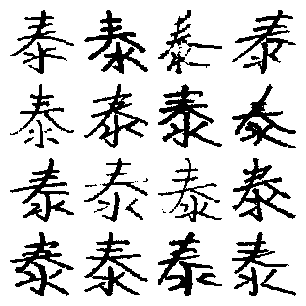 泰泰泰泰
泰泰泰泰
泰泰泰泰
泰泰泰泰